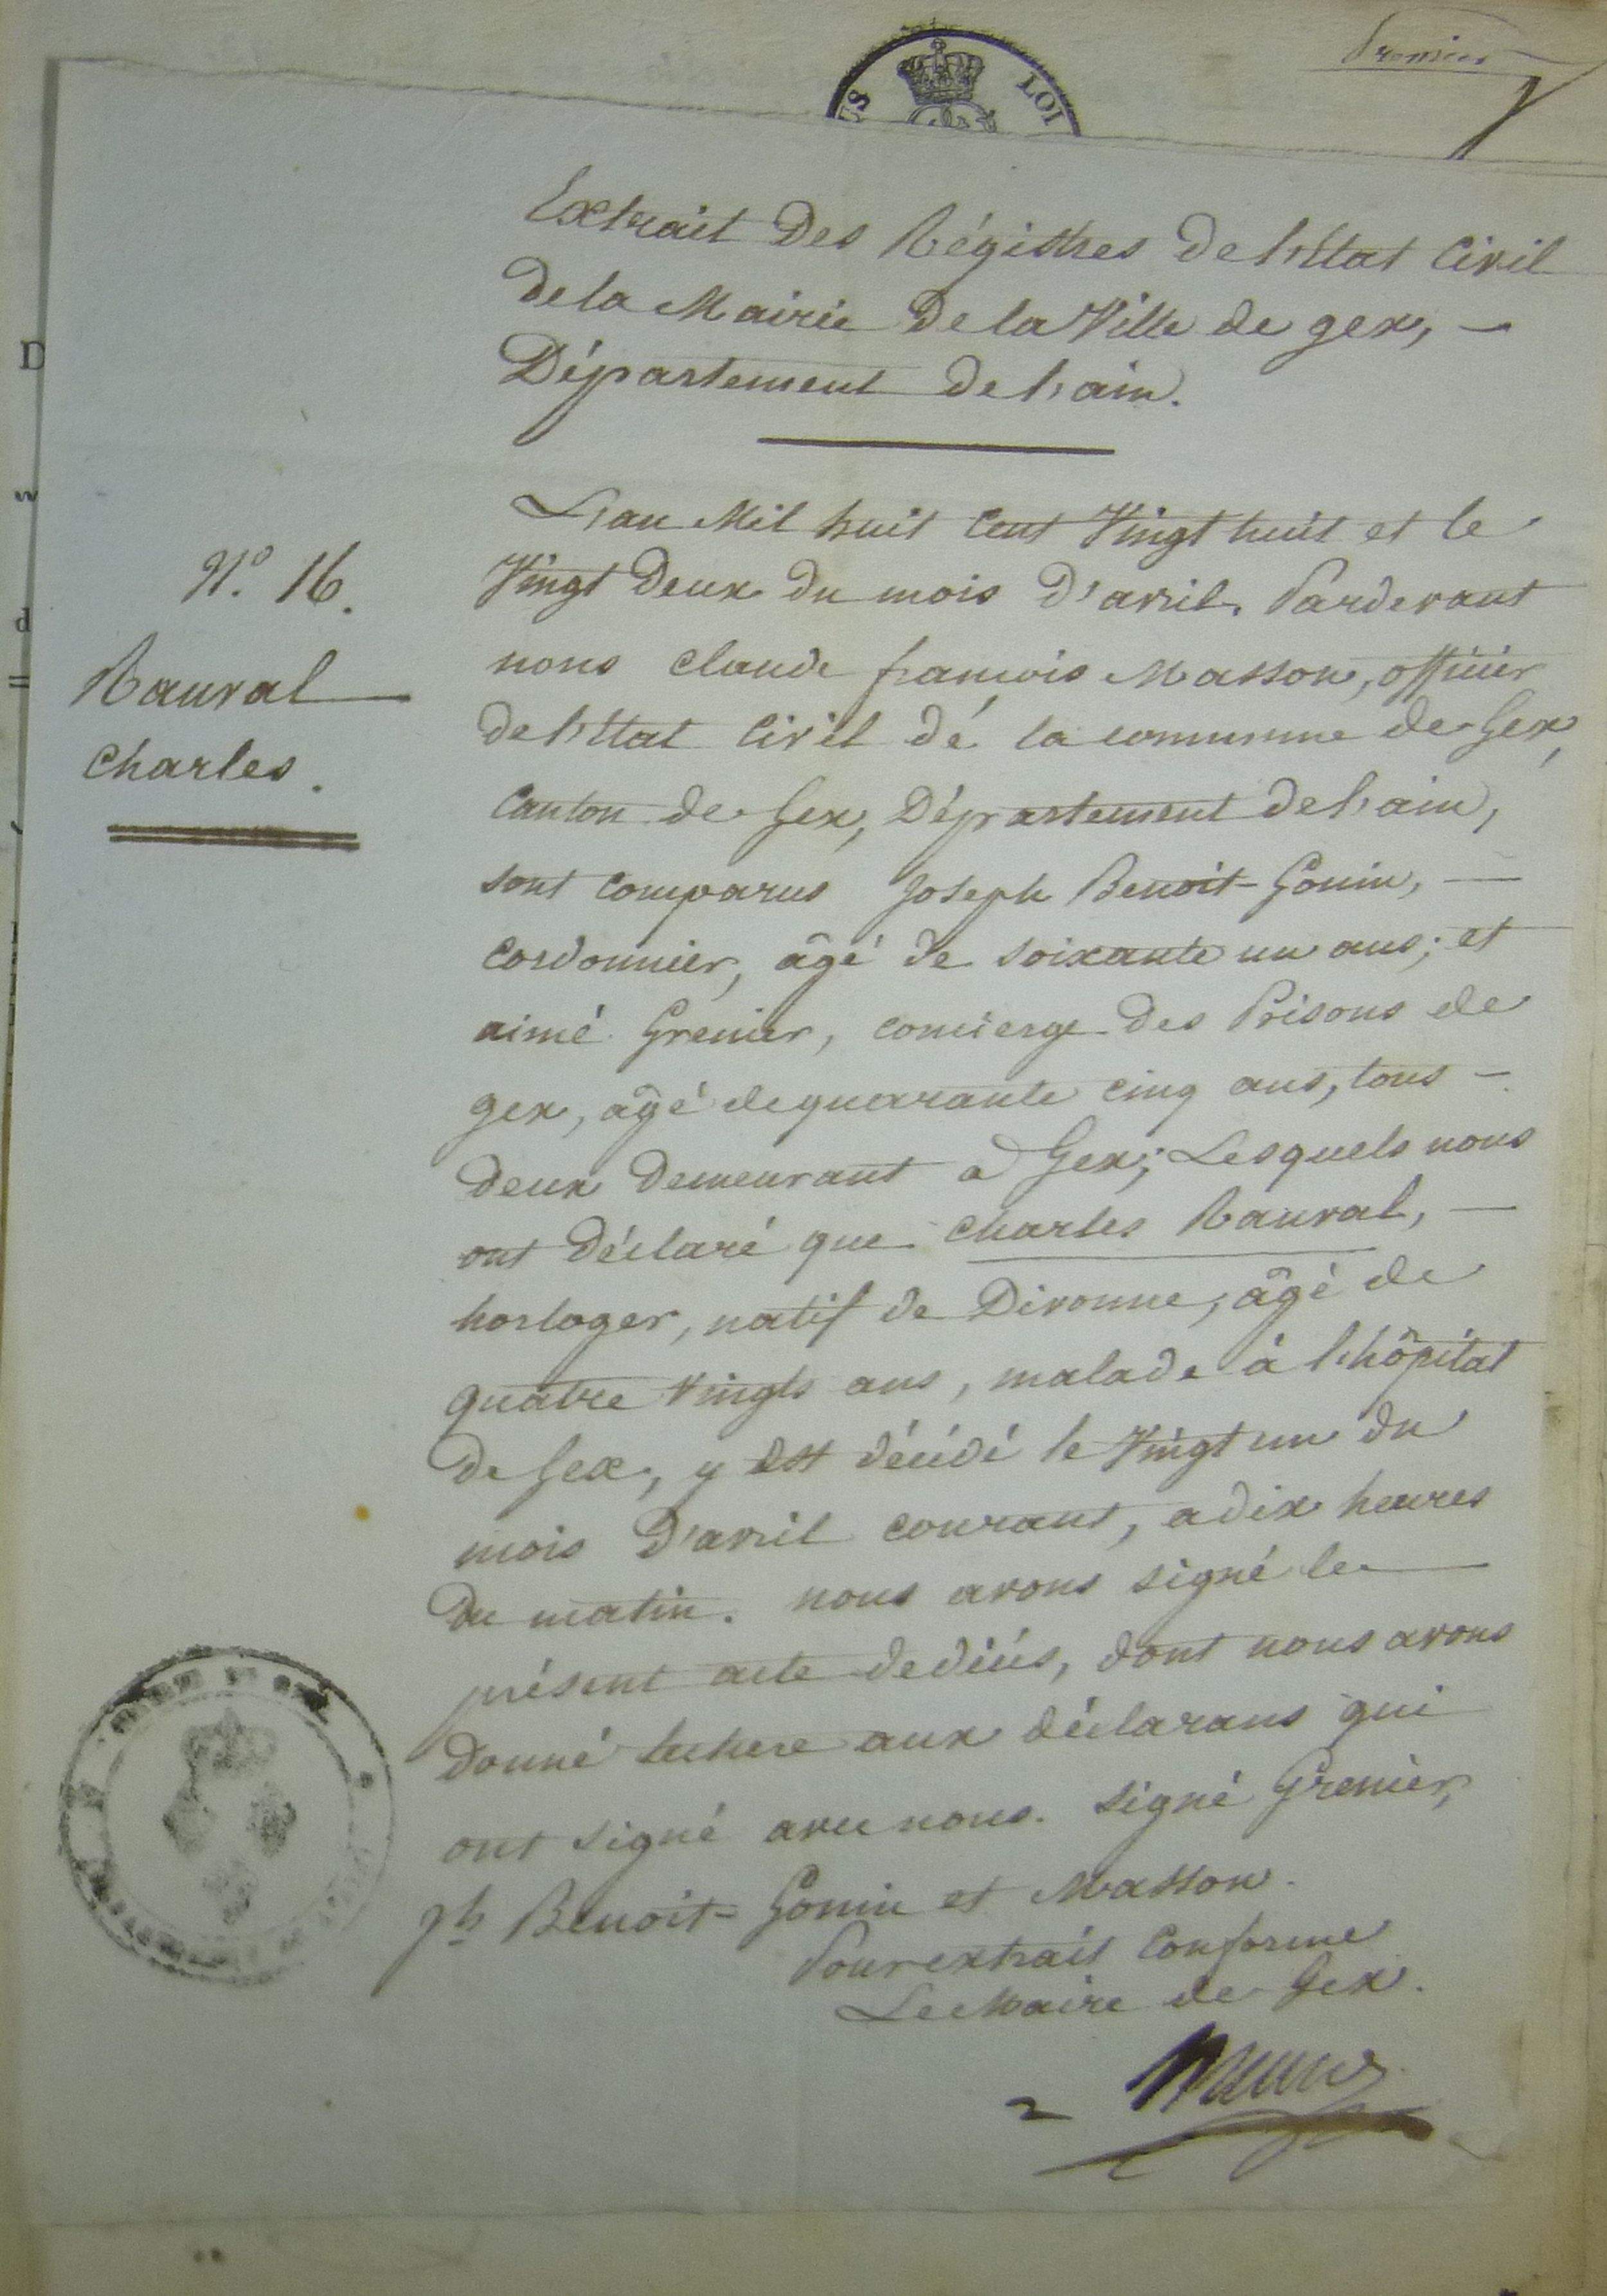 Premier
US LOI
Extrait Des Régistres De l'Etat Civil
De la Mairie De la Ville de gex, —
Département De l'ain.
L'an Mil huit Cent Vingt huit et le
Vingt Deux Du mois D'avril. Pardevant
nous Claude françois Masson, officier
de l'Etat Civil dé la commune de Gex,
Canton de Gex, Département De l'ain,
N.º 16.
Rauval
Charles.
sont Comparus Joseph Benoit-Gonin, —
Cordonnier, âgé de soixante un ans; et
aimé Grenier, concierge des Prisons de
gex, âgé de quarante cinq ans, tous —
deux Demeurant a Gex; Lesquels nous
ont Déclaré que Charles Rauval, —
horloger, natif de Divonne, âgé de
quatre Vingts ans, malade à l'hôpital
de Gex, y est décédé le Vingt un du
mois D'avril courant, a dix heures
du matin. nous avons signé le —
présent acte de décés, dont nous avons
Donné lecture aux déclarans qui
ont signé avec nous. signé Grenier,
Jh Benoit-Gonin et Masson.
Pour extrait Conforme
Le Maire de Gex.
D
w
d
=